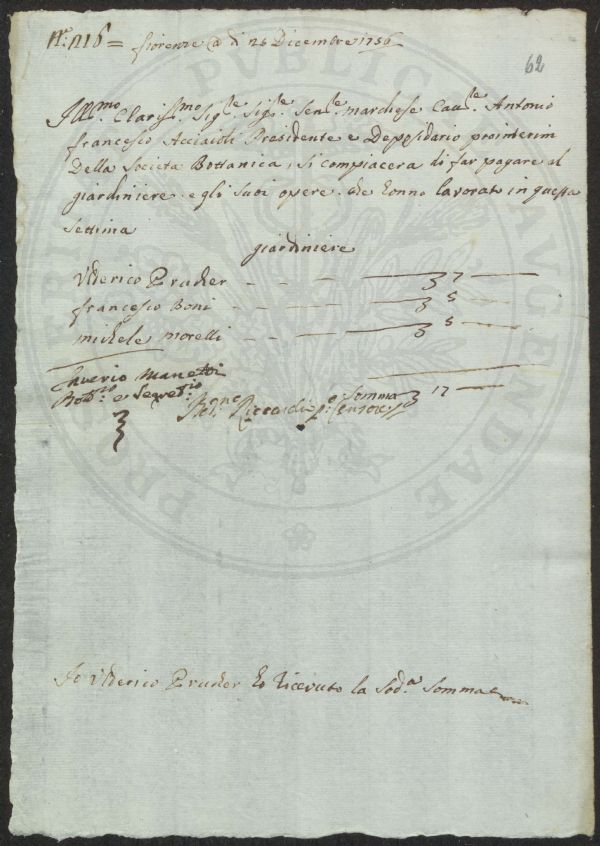 N.° 216 = fiorenze @ di 26 Dicembre 1756
62
Ill.mo Clariss.mo Sig.re Sig.re Sen.re marchese Caul.re Antonio
francesco Acciaioli Presidente e Deppsidario prointerim
Della Societa Bottanica, si compiacera di far pagare al
giardiniere e gli suoi opere che honno lavorato in questa
settima
giardiniere
Ulderico Prucher - - - 7
francesco Boni - - - 5
michele morelli - - - 5
Saverio Manetti
Bott.co e Segret.rio
Somma 17
Riccardi p.o Censore
Io Ulderico Prucher ho ricevuto la Sod.a Somma
PUBLICAE
AUGENDAE